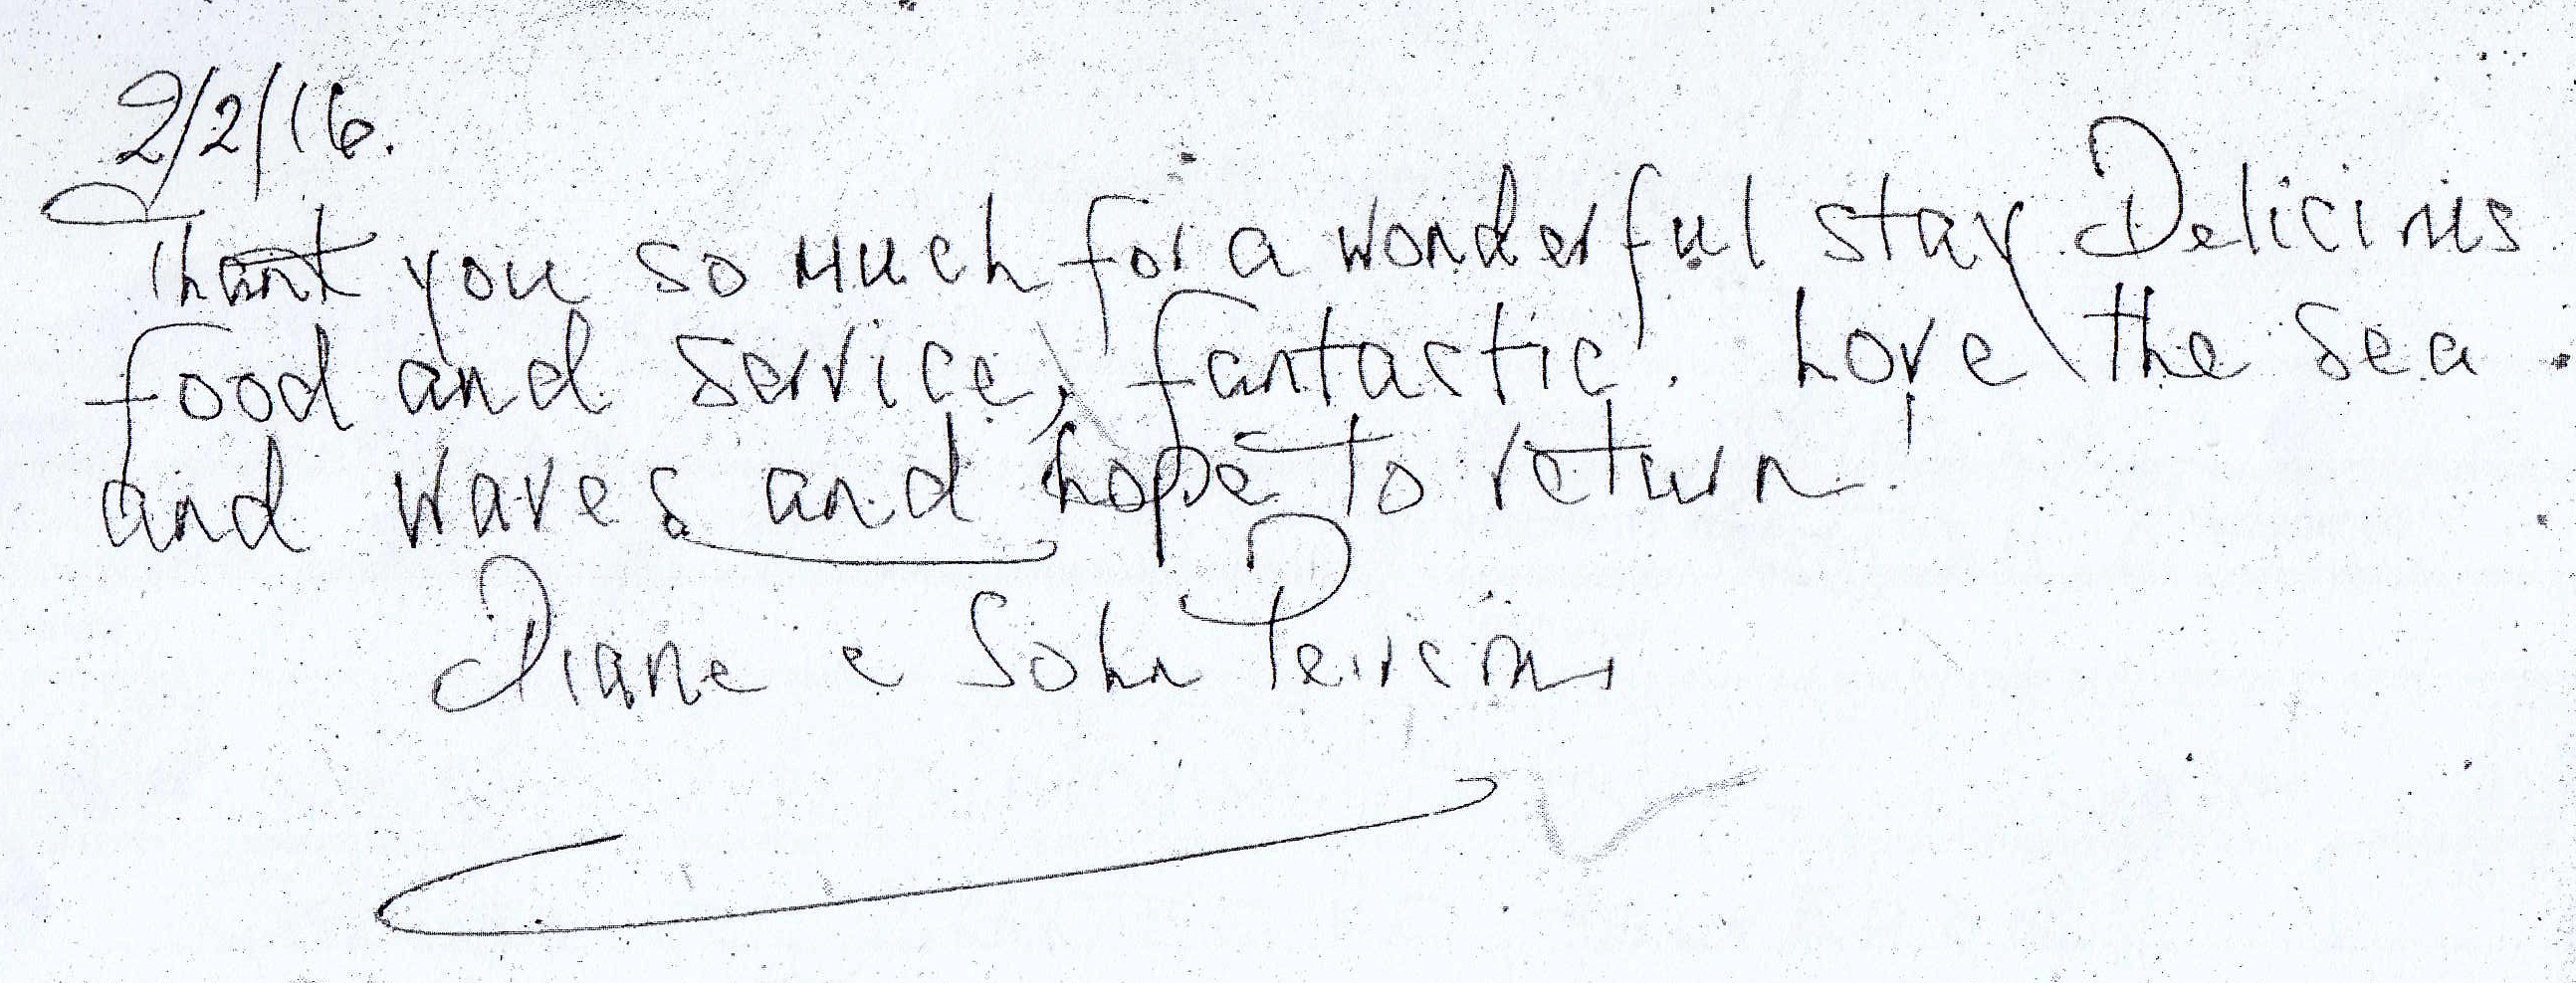 2/2/16.
Thank you so much for a wonderful stay. Delicious
food and service, fantastic. Love the Sea
and waves and hope to return!
Diane & John